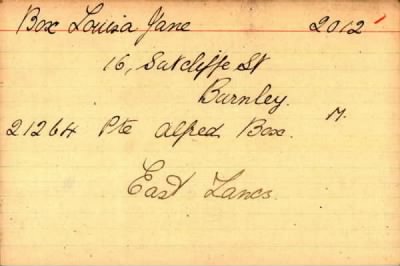 Box Louisa Jane 2012
16, Sutcliffe St
Burnley.
21264 Pte Alfred Box. M.
East Lancs.